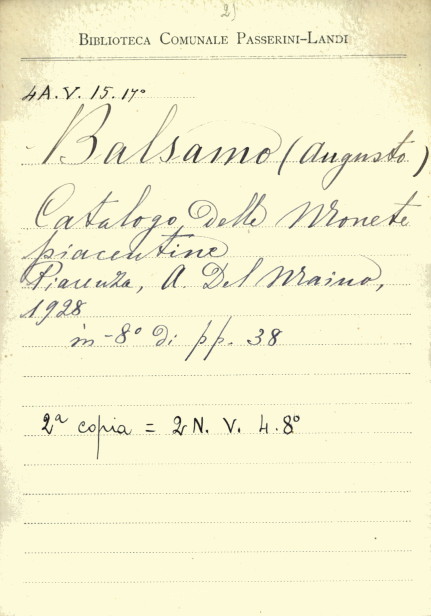 2)
BIBLIOTECA COMUNALE PASSERINI-LANDI
4A.V. 15. 17°
Balsamo (Augusto)
Catalogo delle Monete
piacentine
Piacenza, A. Del Maino,
1928
in-8° di pp. 38
2ª copia = 2 N. V. 4. 8°